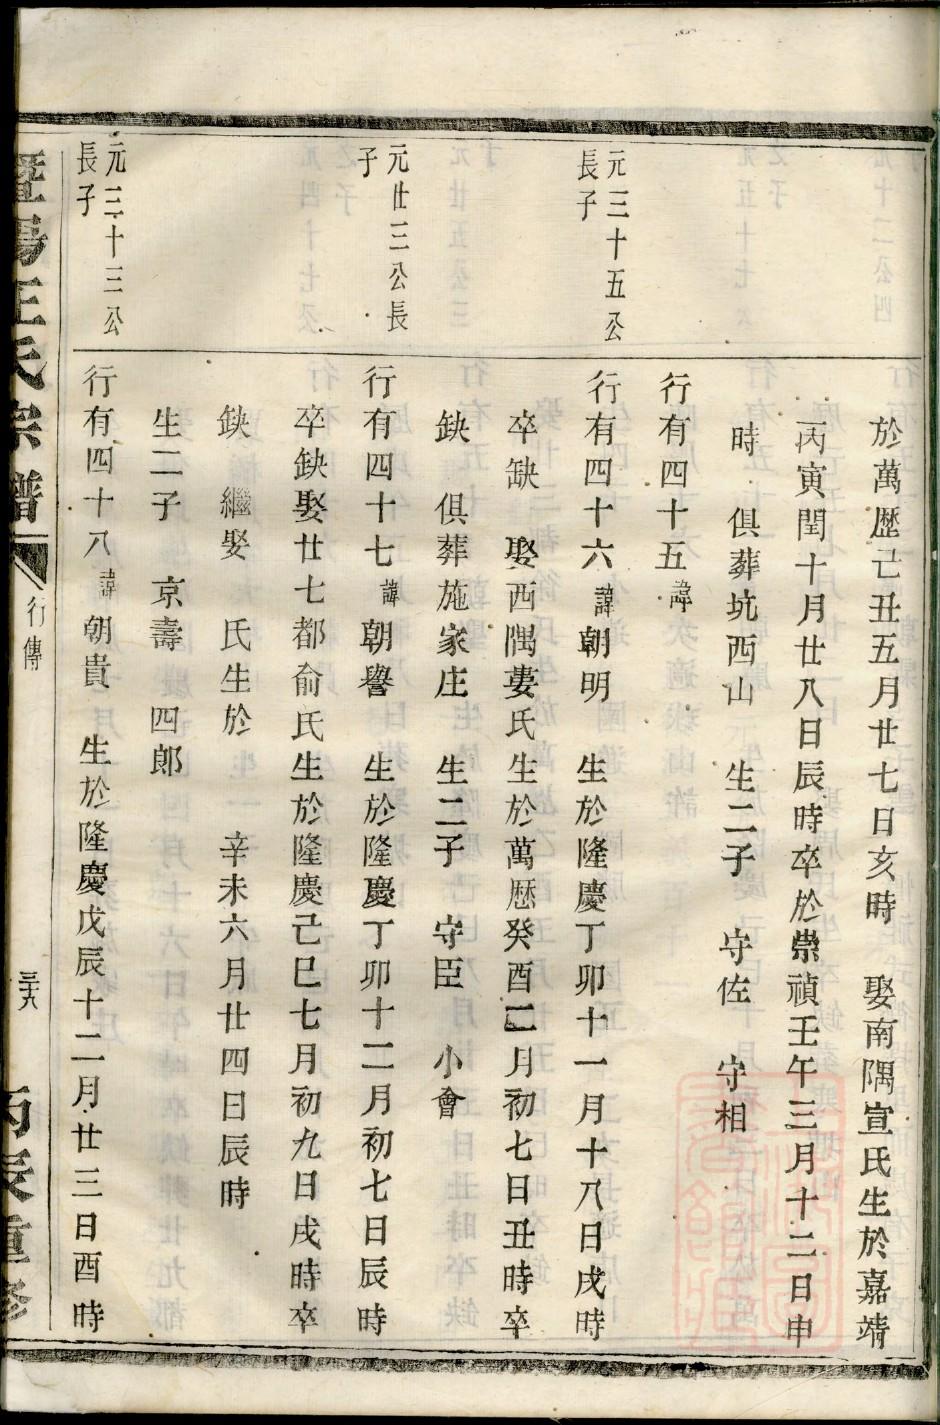 於萬歷己丑五月廿七日亥時 娶南隅宣氏生於嘉靖
丙寅閏十月廿八日辰時卒於崇禎壬午三月十二日申
時 俱葬坑西山 生二子 守佐 守相
行有四十五諱
元三十五公
長子
行有四十六諱朝明 生於隆慶丁卯十一月十八日戌時
卒缺 娶西隅婁氏生於萬歷癸酉二月初七日丑時卒
缺 俱葬施家庄 生二子 守臣 小會
元廿三公長
子
行有四十七諱朝譽 生於隆慶丁卯十二月初七日辰時
卒缺娶廿七都俞氏生於隆慶己巳七月初九日戌時卒
缺 繼娶 氏生於 辛未六月廿四日辰時
生二子 京壽 四郎
元三十三公
長子
行有四十八諱朝貴 生於隆慶戊辰十二月廿三日酉時
暨陽王氏宗譜
行傳
丙辰重修